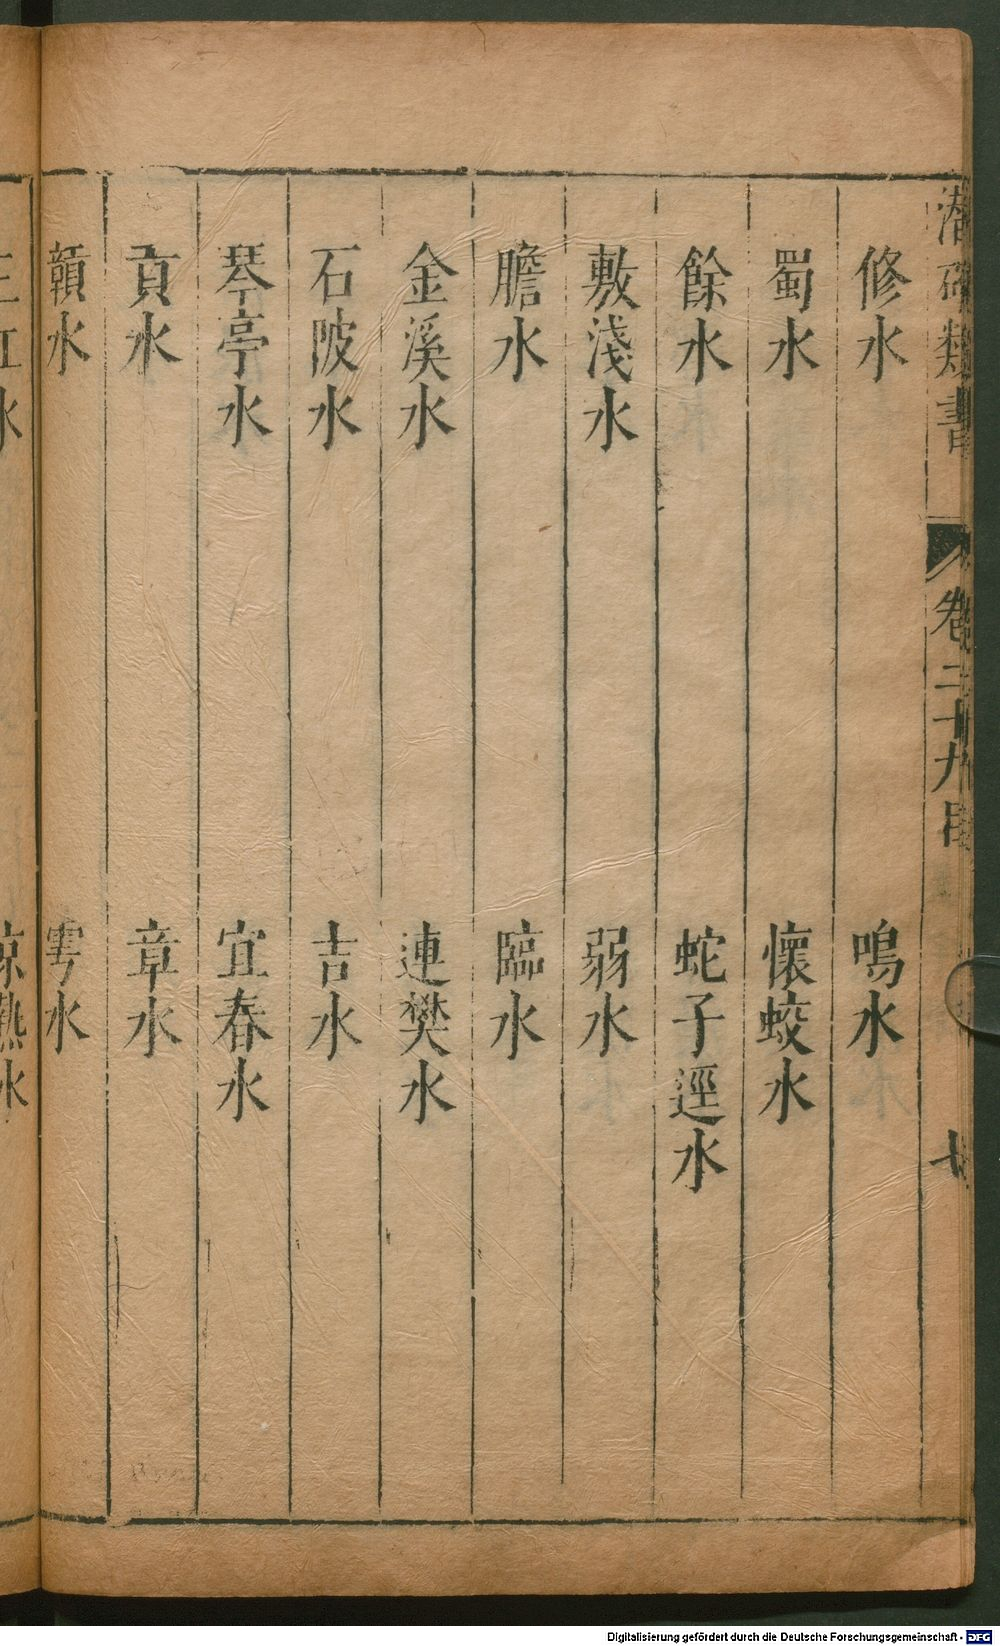 潛確類書
卷二十九目
七
修水　鳴水
蜀水　懷蛟水
餘水　蛇子逕水
敷淺水　弱水
膽水　臨水
金溪水　連樊水
石陂水　吉水
琴亭水　宜春水
貢水　章水
贛水　雩水
三江水　涼熱水
Digitalisierung gefördert durch die Deutsche Forschungsgemeinschaft - DFG